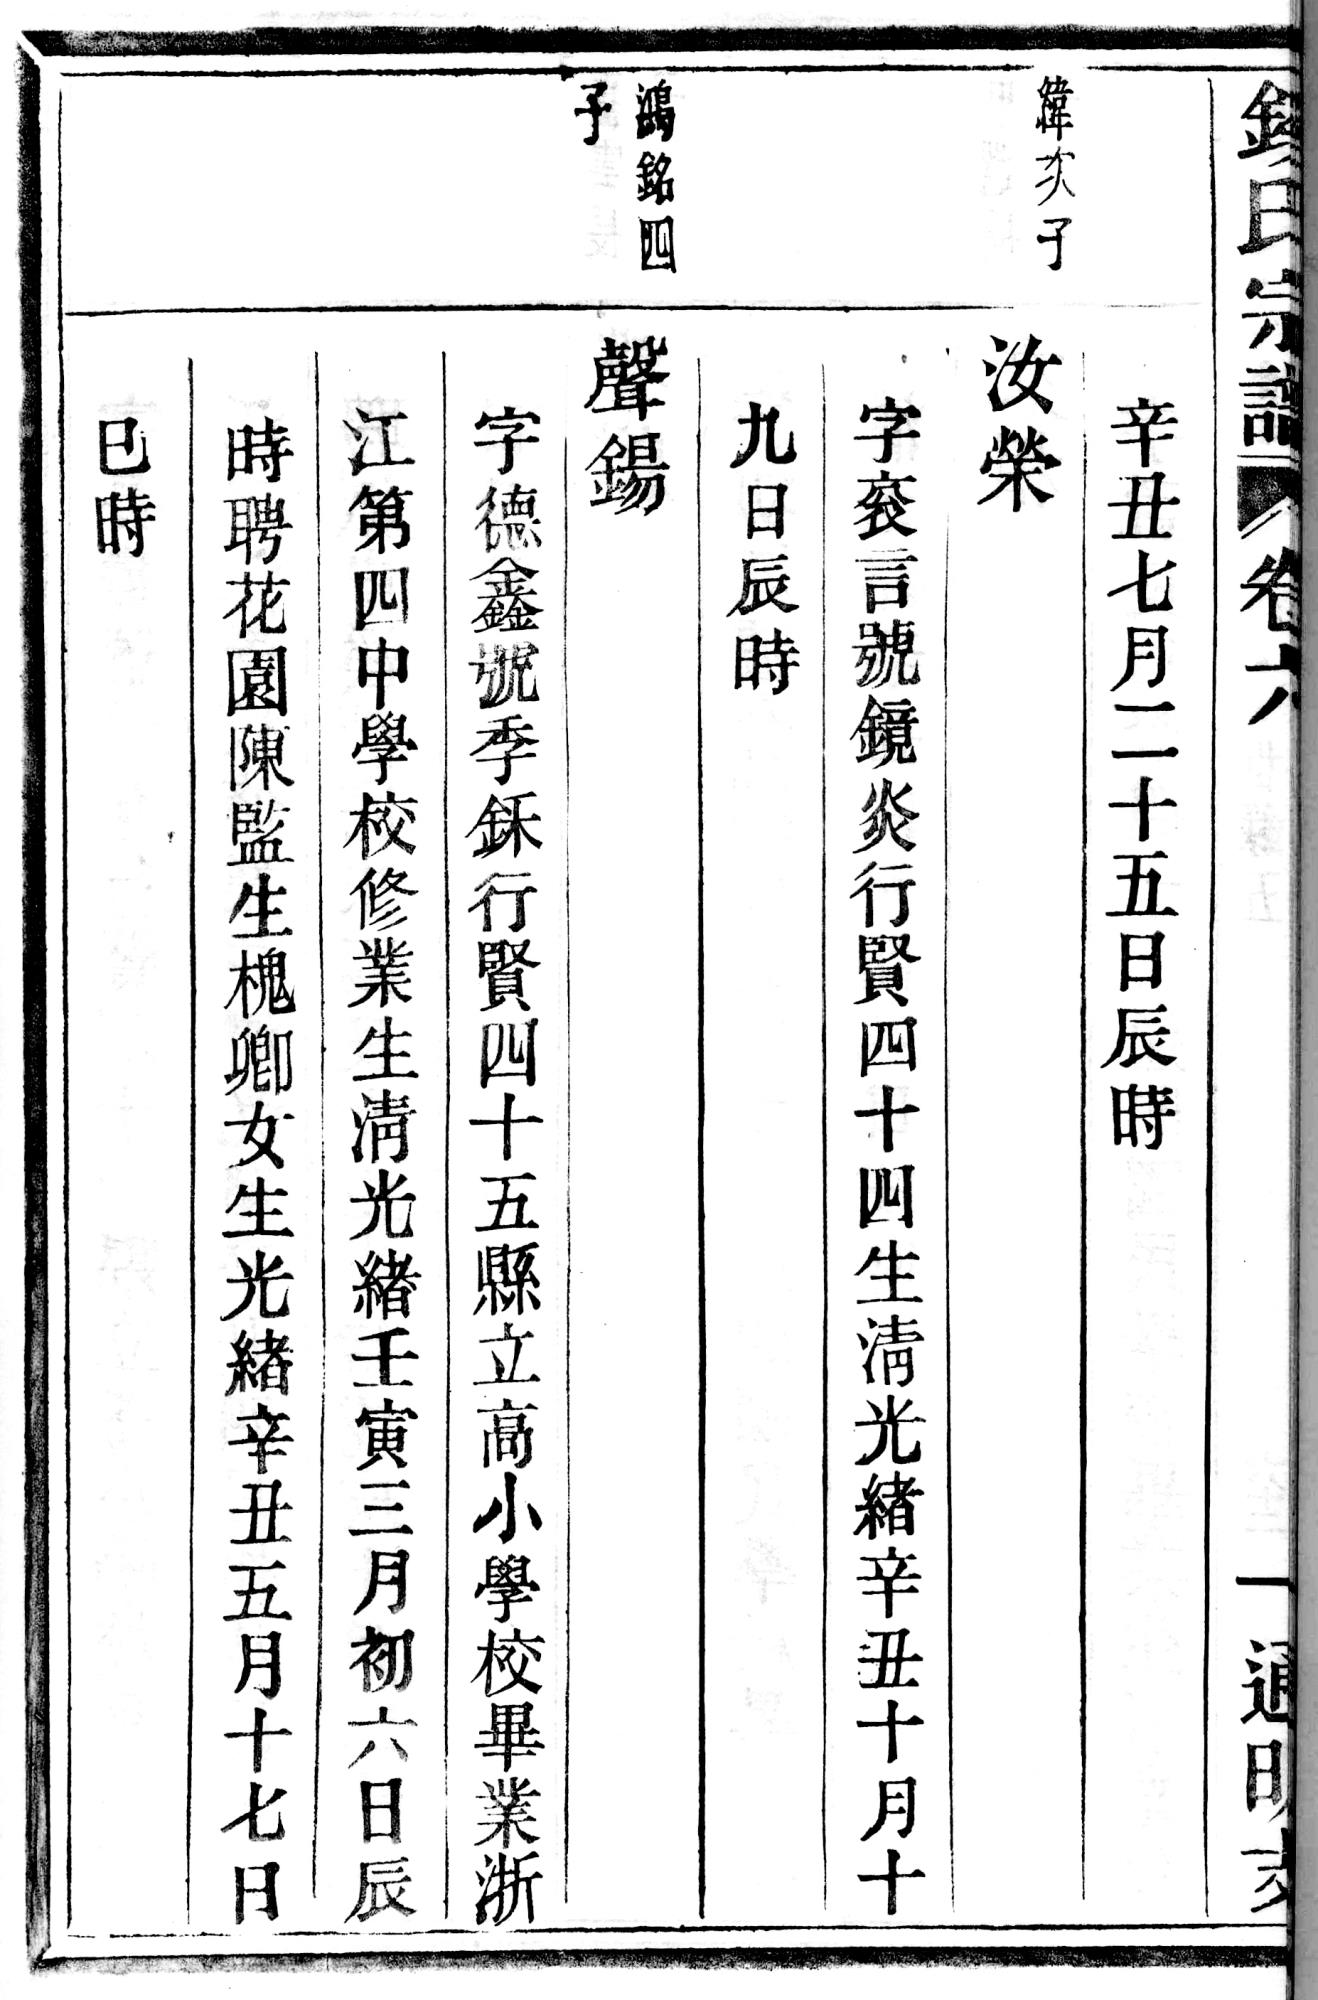 錢氏宗譜 卷六 一 通明支
辛丑七月二十五日辰時
緯次子
汝榮
字袞言號鏡炎行賢四十四生淸光緒辛丑十月十
九日辰時
鴻銘四
子
聲鍚
字德鑫號季鉌行賢四十五縣立高小學校畢業浙
江第四中學校修業生淸光緒壬寅三月初六日辰
時聘花園陳監生槐卿女生光緒辛丑五月十七日
巳時